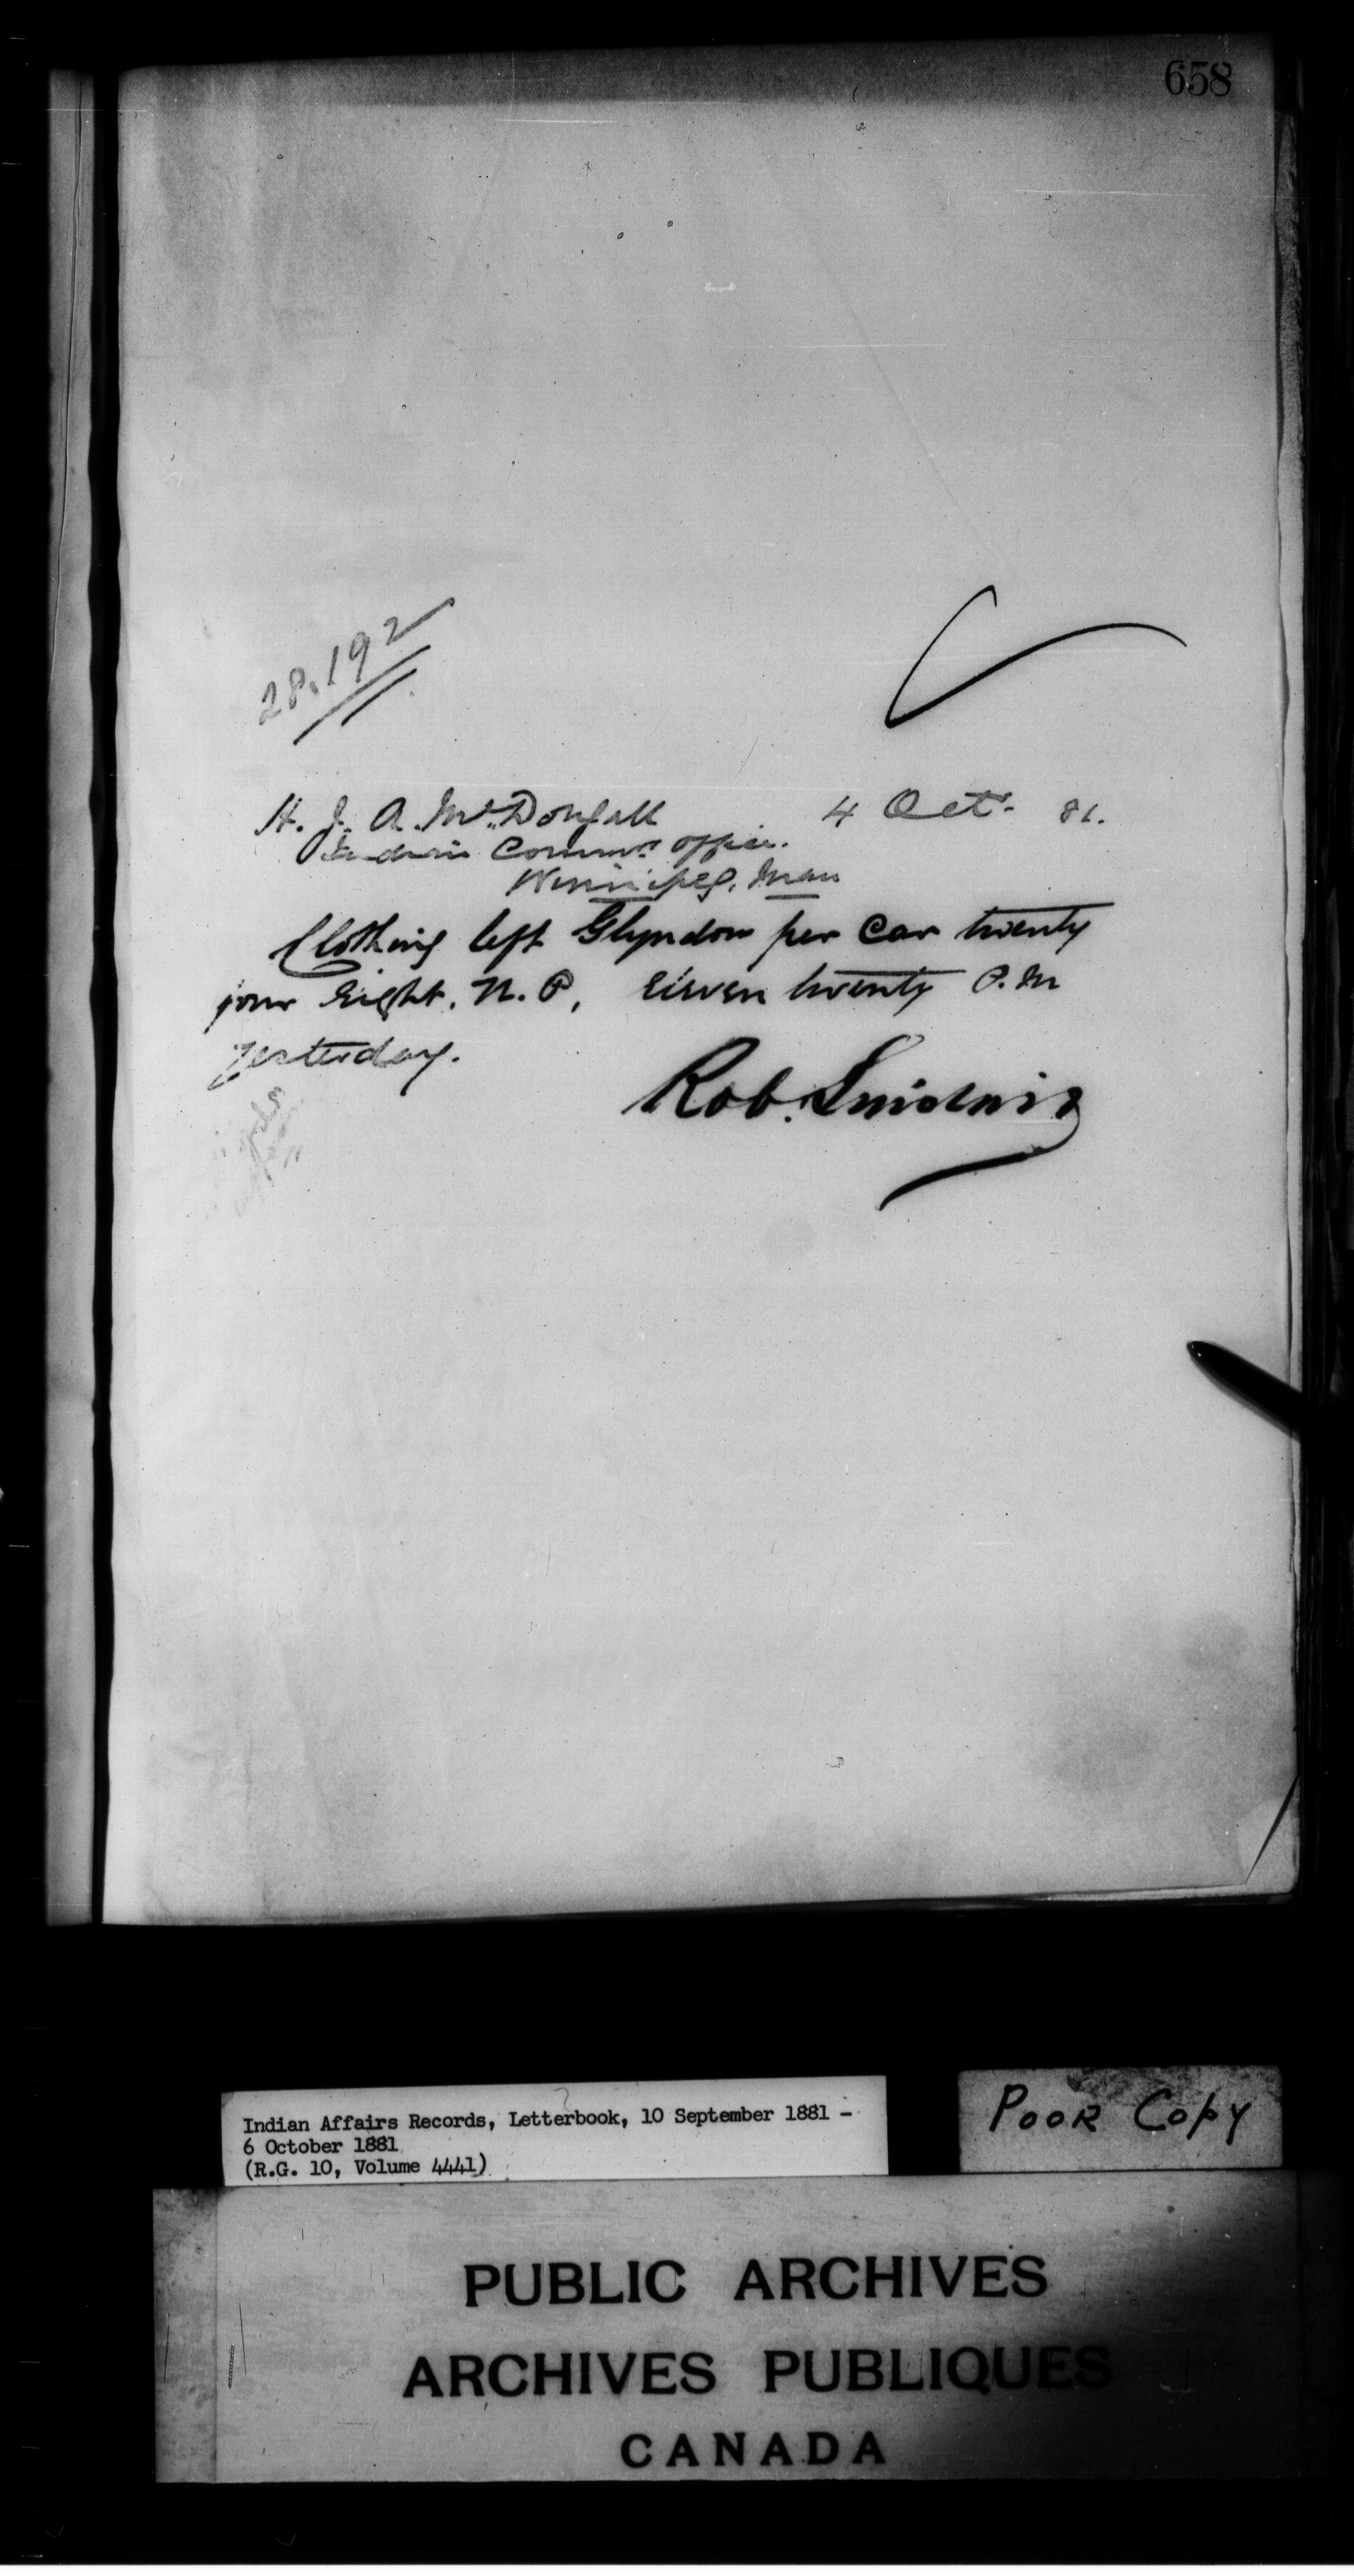 658
28.192
H. J. A. McDougall 4 Oct. 81.
Indian Commrs Office.
Winnipeg, Man
Clothing left Glyndon per car twenty
four eight. N. P, eleven twenty P.M
yesterday.
Rob. Sinclair
Indian Affairs Records, Letterbook, 10 September 1881 -
6 October 1881
(R.G. 10, Volume 4441)
Poor Copy
PUBLIC ARCHIVES
ARCHIVES PUBLIQUES
CANADA